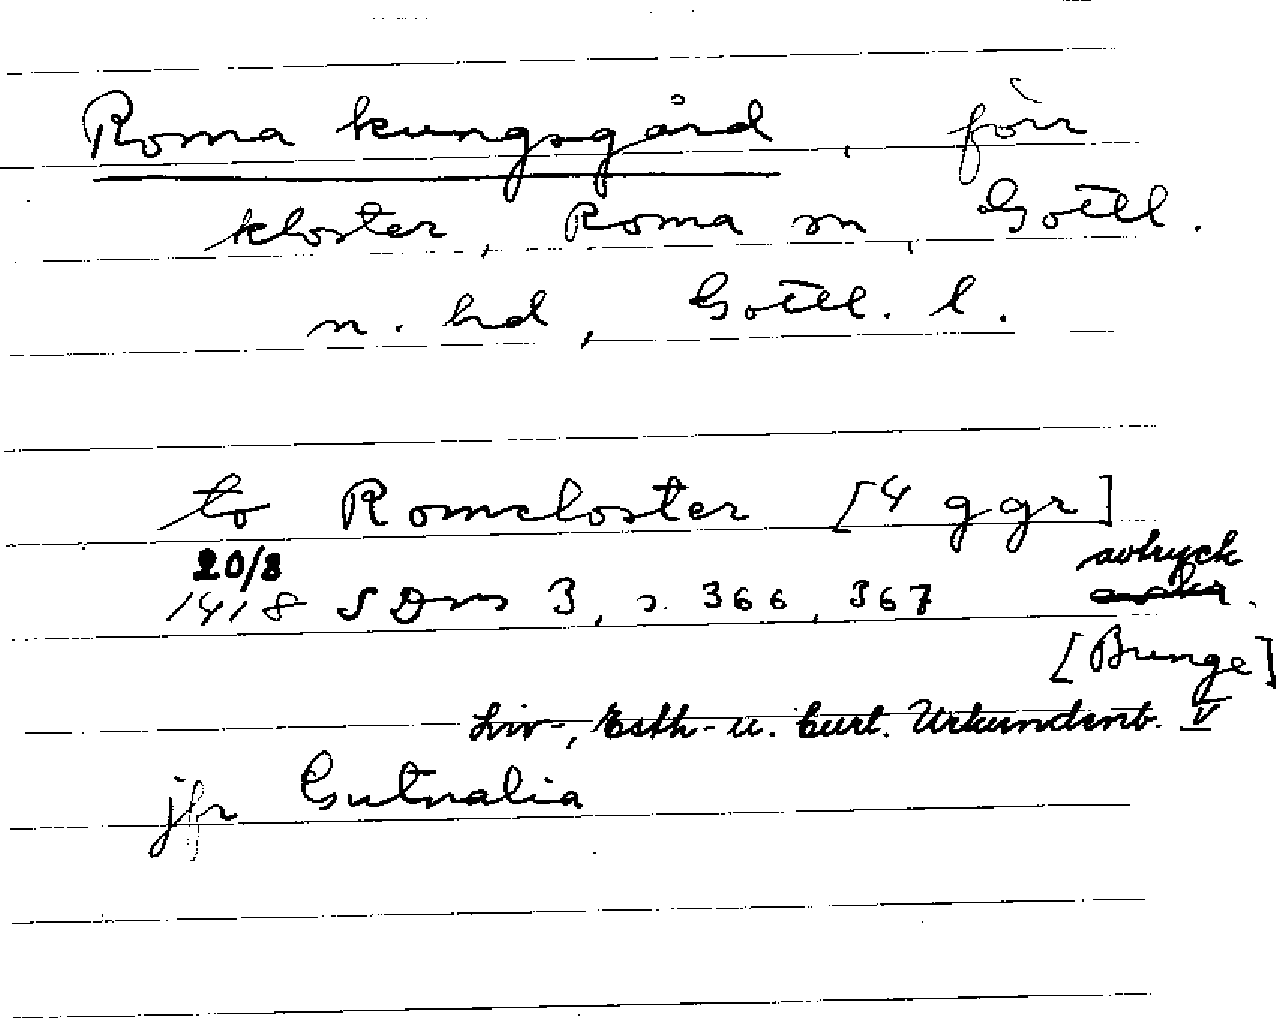 Roma kungsgård, förr
kloster, Roma sn, Gotl.
n. hd, Gotl. l.
to Romcloster [4 ggr]
20/8
1418 SDns 3, s. 366, 367 avtryck
[Bunge]
Liv-, Esth- u. Curl. Urkundenb. V
jfr Gutnalia